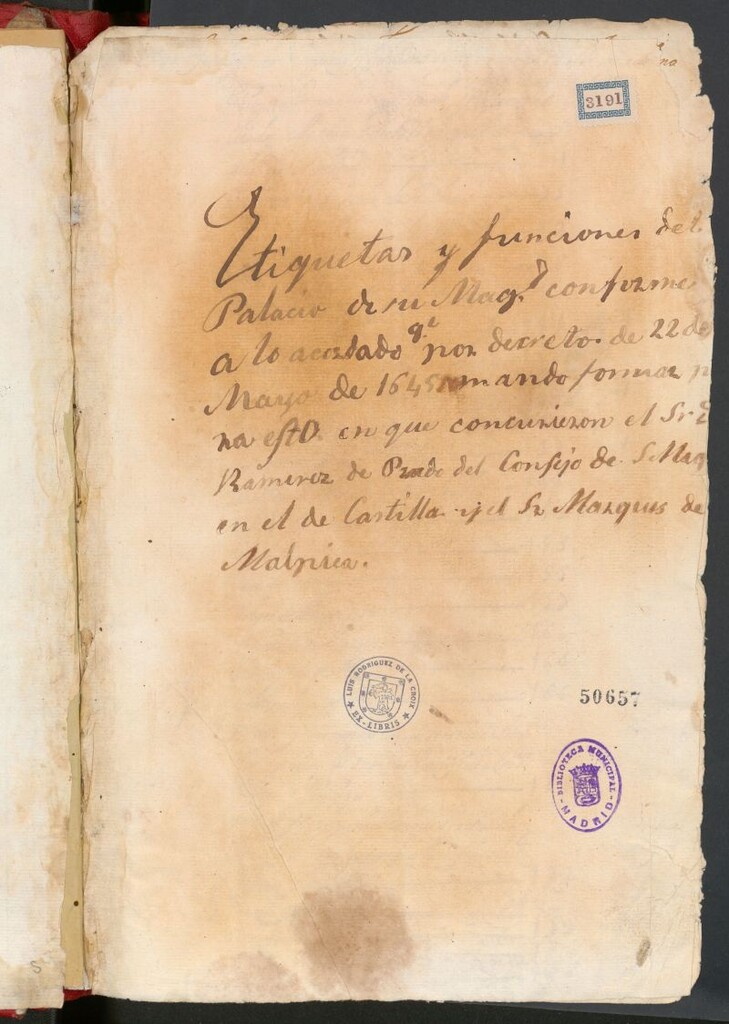 3191
Etiquetas y funciones del
Palacio de su Mag.d conforme
a lo acordado q.e por decreto de 22 de
Mayo de 1645 mando formar p
ra esto en que concurrieron el Sr. D
Ramirez de Prado del Consejo de S. Mag
en el de Castilla y el Sr Marques de
Malpica.
LUIS RODRIGUEZ DE LA CROIX
EX-LIBRIS
50657
BIBLIOTECA MUNICIPAL
MADRID